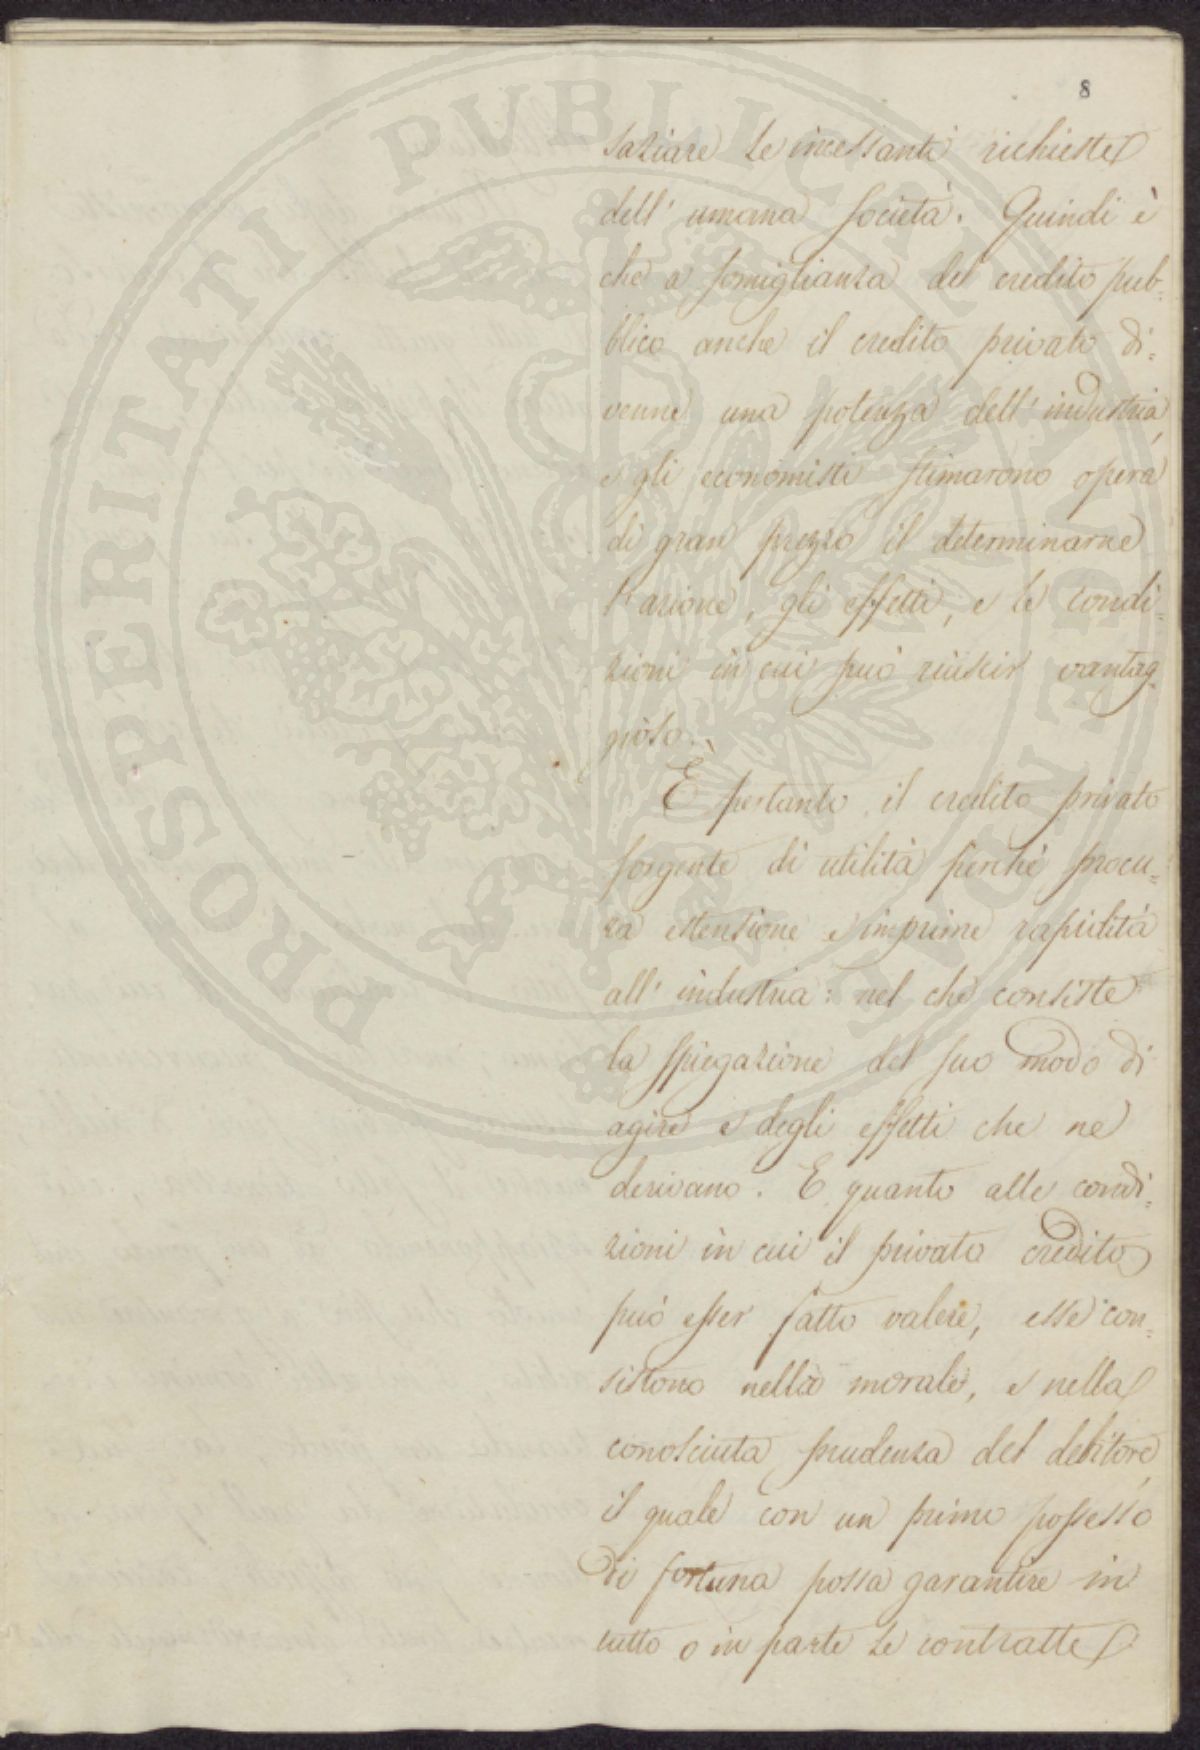 8
saziare le incessanti richieste
dell' umana società. Quindi è
che a somiglianza del credito pub=
blico anche il credito privato di=
venne una potenza dell' industria,
e gli economisti stimarono opera
di gran prezzo il determinarne
l' azione, gli effetti, e le condi=
zioni in cui può riuscir vantag=
gioso.
È pertanto il credito privato
sorgente di utilità perchè procu=
ra estensione e imprime rapidità
all' industria: nel che consiste
la spiegazione del suo modo di
agire e degli effetti che ne
derivano. E quanto alle condi=
zioni in cui il privato credito
può esser fatto valere, esse con=
sistono nella morale, e nella
conosciuta prudenza del debitore,
il quale con un primo possesso
di fortuna possa garantire in
tutto o in parte le contratte
PROSPERITATI PUBLICAE AUGENDAE